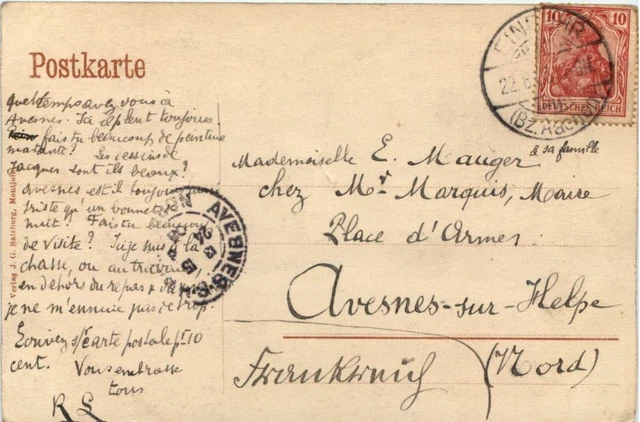 Postkarte
Quel temps avez vous à
Avesnes. Ici il pleut toujours.
fais tu beaucoup de peinture
ma tante? Les dessins de
Jacques sont ils beaux?
Avesnes est il toujours aussi
triste qu'un bonnet de
nuit? Fais tu beaucoup
de visite? Si je suis à la
chasse, ou au travail
en dehors du repas
je ne m'ennuie pas trop.
Ecrivez s/ carte postale pr 10
cent. Vous embrasse
tous
R L
Verlag J. G. Salzburg, Montjoie
10 10
DEUTSCHES REICH
22.8
(Bz. Aachen)
AVESNES-S-
NORD
à sa famille
Mademoiselle E. Mauger
chez Mr Marquis, Maire
Place d'Armes
Avesnes-sur-Helpe
(Nord)
Frankreich